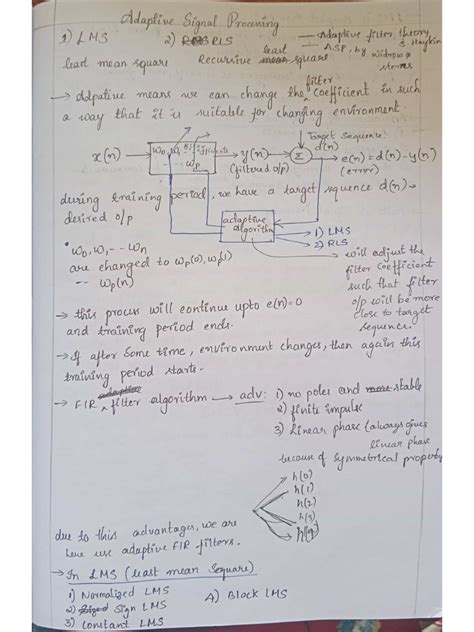 Adaptive Signal Processing
1) LMS
2) RLS
— Adaptive filter theory, S. Haykin
— ASP, by Widrow & sterns
least mean square
Recursive least square
→ Adpative means we can change the filter coefficient in such
a way that it is suitable for changing environment.
Target Sequence
d(n)
x(n)
w0, w1
filter
-- wp
y(n)
(filtered o/p)
Σ
e(n)=d(n)-y(n)
(error)
during training period, we have a target squence d(n)→
desired o/p
adaptive
algorithm
1) LMS
2) RLS
• w0, w1, -- wn
are changed to wp(0), wp(1)
-- wp(n)
will adjust the
filter coefficient
such that filter
o/p will be more
close to target
sequence.
→ this process will continue upto e(n)=0
and training period ends.
→ If after some time, environment changes, then again this
training period starts.
→ FIR adaptive filter algorithm → adv: 1) no poles and stable
2) finite impulse
3) Linear phase (always gives
linear phase
because of symmetrical property
h(0)
h(1)
h(2)
h(3)
h(4)
due to this advantages, we are
here use adaptive FIR filters.
→ In LMS (least mean square)
1) Normalized LMS
4) Block LMS
2) Sign LMS
3) Constant LMS